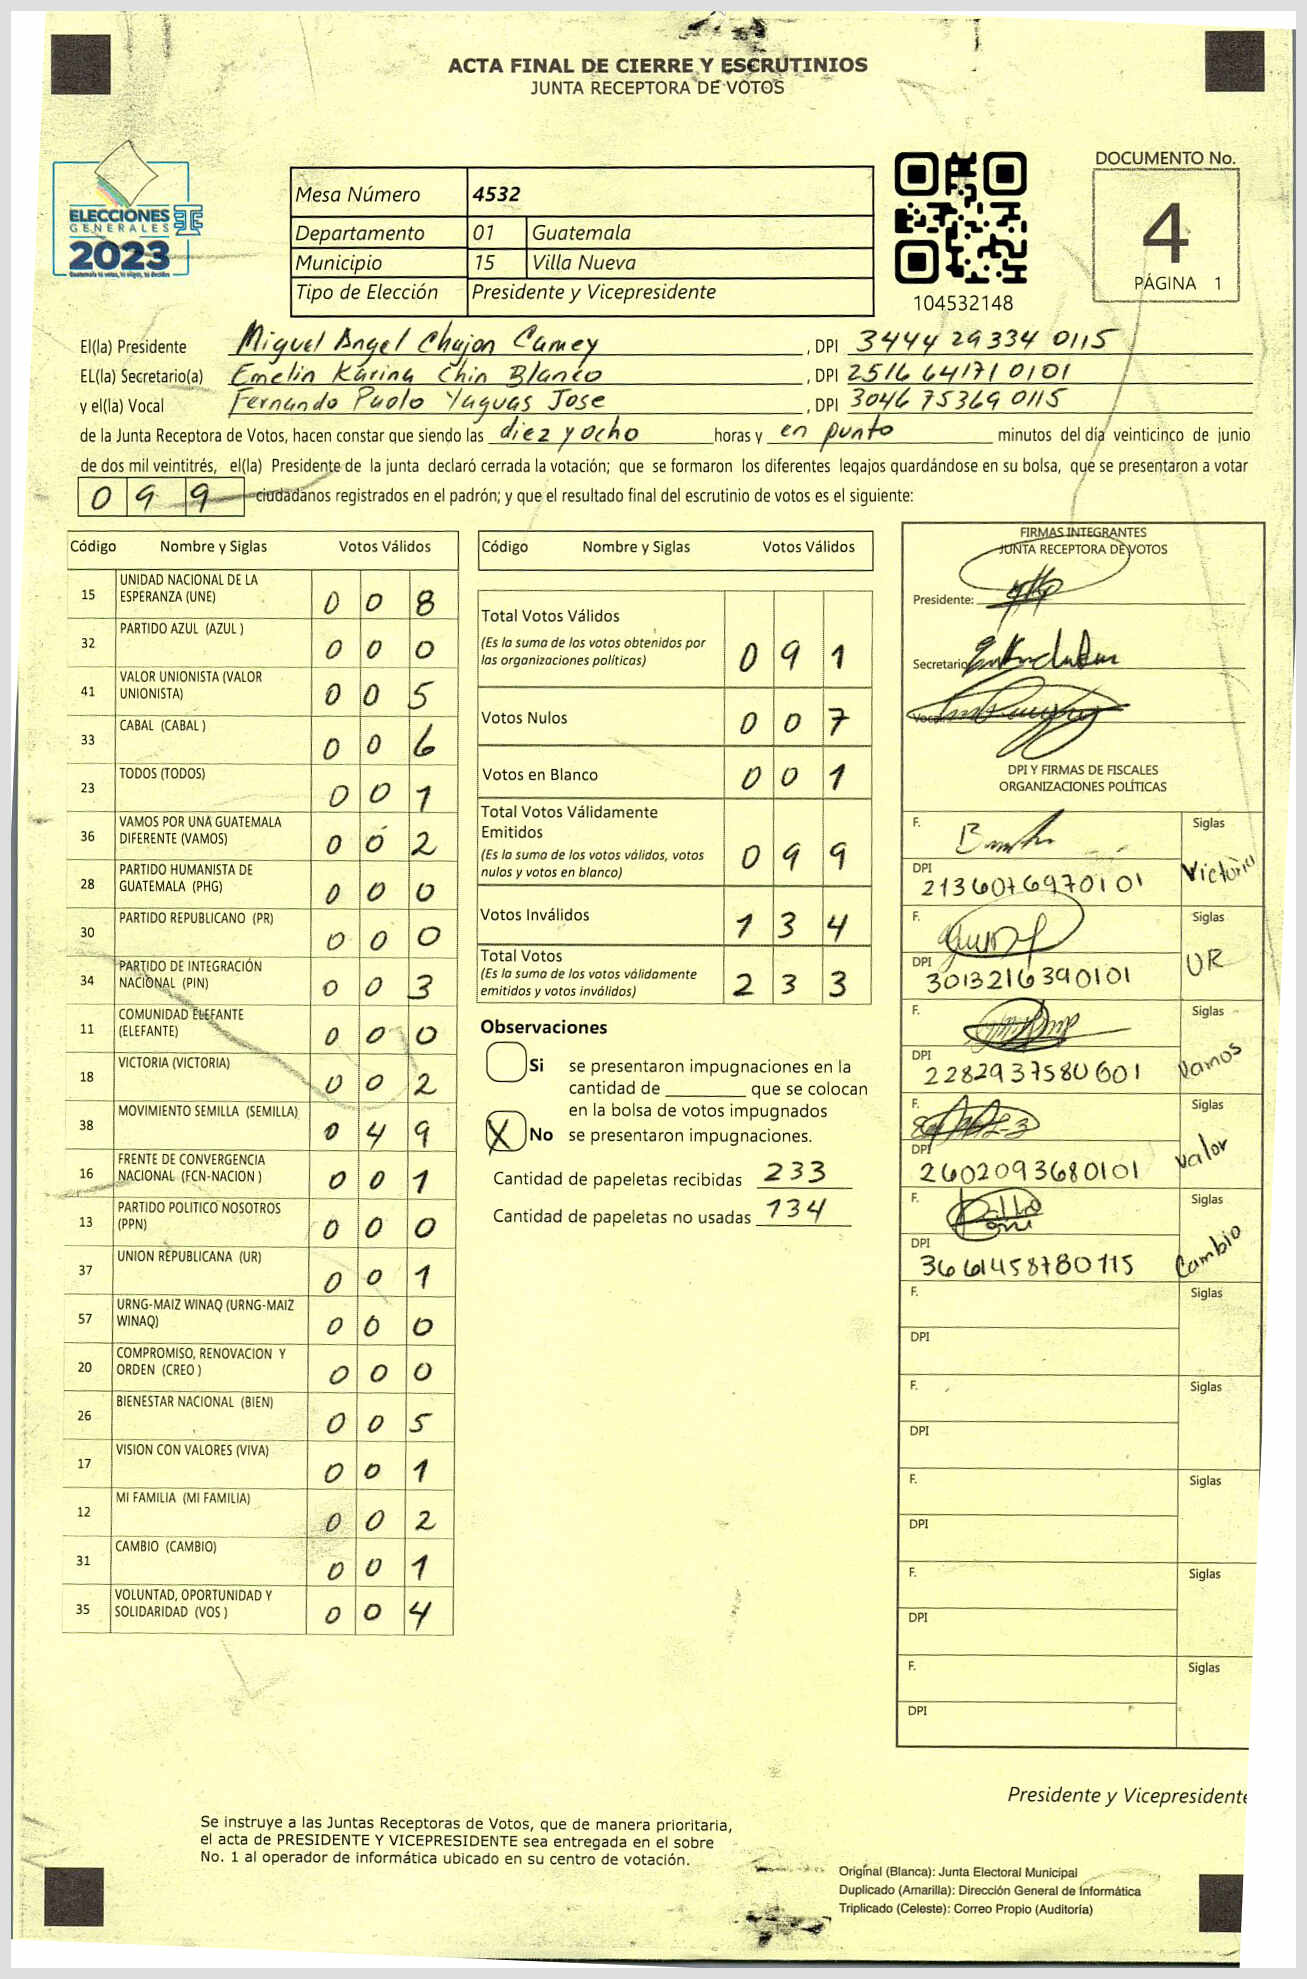 ACTA FINAL DE CIERRE Y ESCRUTINIOS
JUNTA RECEPTORA DE VOTOS
ELECCIONES
GENERALES
2023
Mesa Número 4532
Departamento 01 Guatemala
Municipio 15 Villa Nueva
Tipo de Elección Presidente y Vicepresidente
104532148
DOCUMENTO No.
4
PÁGINA 1
El(la) Presidente Miguel Angel Chajon Camey , DPI 3444 29334 0115
EL(la) Secretario(a) Emelin Karina Chin Blanco , DPI 2516 64171 0101
y el(la) Vocal Fernando Paolo Yaguas Jose , DPI 3046 75369 0115
de la Junta Receptora de Votos, hacen constar que siendo las diez y ocho horas y en punto minutos del día veinticinco de junio
de dos mil veintitrés, el(la) Presidente de la junta declaró cerrada la votación; que se formaron los diferentes legajos guardándose en su bolsa, que se presentaron a votar
0 9 9 ciudadanos registrados en el padrón; y que el resultado final del escrutinio de votos es el siguiente:
Código Nombre y Siglas Votos Válidos
15 UNIDAD NACIONAL DE LA ESPERANZA (UNE) 0 0 8
32 PARTIDO AZUL (AZUL ) 0 0 0
41 VALOR UNIONISTA (VALOR UNIONISTA) 0 0 5
33 CABAL (CABAL ) 0 0 6
23 TODOS (TODOS) 0 0 1
36 VAMOS POR UNA GUATEMALA DIFERENTE (VAMOS) 0 0 2
28 PARTIDO HUMANISTA DE GUATEMALA (PHG) 0 0 0
30 PARTIDO REPUBLICANO (PR) 0 0 0
34 PARTIDO DE INTEGRACIÓN NACIONAL (PIN) 0 0 3
11 COMUNIDAD ELEFANTE (ELEFANTE) 0 0 0
18 VICTORIA (VICTORIA) 0 0 2
38 MOVIMIENTO SEMILLA (SEMILLA) 0 4 9
16 FRENTE DE CONVERGENCIA NACIONAL (FCN-NACION ) 0 0 1
13 PARTIDO POLITICO NOSOTROS (PPN) 0 0 0
37 UNION REPUBLICANA (UR) 0 0 1
57 URNG-MAIZ WINAQ (URNG-MAIZ WINAQ) 0 0 0
20 COMPROMISO, RENOVACION Y ORDEN (CREO ) 0 0 0
26 BIENESTAR NACIONAL (BIEN) 0 0 5
17 VISION CON VALORES (VIVA) 0 0 1
12 MI FAMILIA (MI FAMILIA) 0 0 2
31 CAMBIO (CAMBIO) 0 0 1
35 VOLUNTAD, OPORTUNIDAD Y SOLIDARIDAD (VOS ) 0 0 4
Código Nombre y Siglas Votos Válidos
Total Votos Válidos
(Es la suma de los votos obtenidos por
las organizaciones políticas) 0 9 1
Votos Nulos 0 0 7
Votos en Blanco 0 0 1
Total Votos Válidamente
Emitidos
(Es la suma de los votos válidos, votos
nulos y votos en blanco) 0 9 9
Votos Inválidos 1 3 4
Total Votos
(Es la suma de los votos válidamente
emitidos y votos inválidos) 2 3 3
Observaciones
Si se presentaron impugnaciones en la
cantidad de que se colocan
en la bolsa de votos impugnados
X No se presentaron impugnaciones.
Cantidad de papeletas recibidas 233
Cantidad de papeletas no usadas 134
FIRMAS INTEGRANTES
JUNTA RECEPTORA DE VOTOS
Presidente:
Secretario
DPI Y FIRMAS DE FISCALES
ORGANIZACIONES POLÍTICAS
F. Siglas
Victoria
DPI 2136076970101
F. Siglas
UR
DPI 3013216390101
F. Siglas
Vamos
DPI 2282937580601
F. Siglas
Valor
DPI 2602093680101
F. Siglas
Cambio
DPI 3661458780115
F. Siglas
DPI
F. Siglas
DPI
F. Siglas
DPI
F. Siglas
DPI
F. Siglas
DPI
Presidente y Vicepresidente
Se instruye a las Juntas Receptoras de Votos, que de manera prioritaria,
el acta de PRESIDENTE Y VICEPRESIDENTE sea entregada en el sobre
No. 1 al operador de informática ubicado en su centro de votación.
Original (Blanca): Junta Electoral Municipal
Duplicado (Amarilla): Dirección General de Informática
Triplicado (Celeste): Correo Propio (Auditoría)